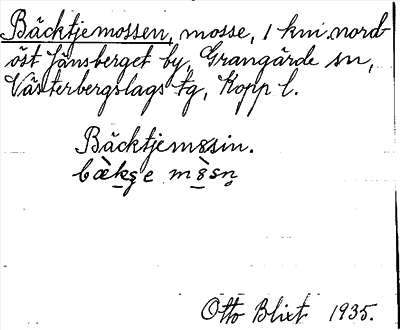 Bäcktjemossen, mosse, 1 km. nord
öst Jänsberget by, Grangärde sn,
Västerbergslags tg, Kopp l.
Bäcktjem8sin.
Otto Blixt 1935.